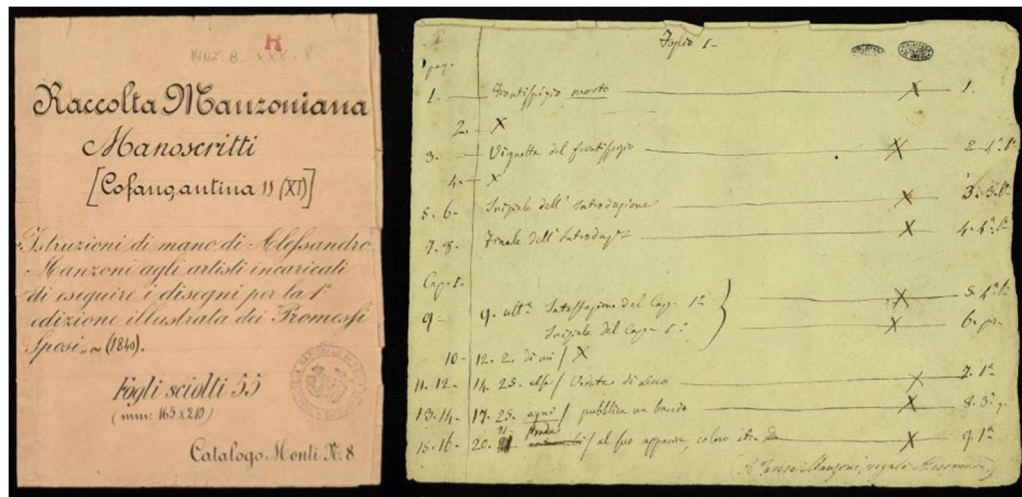 R
MANZ. B. XXX. 8
Raccolta Manzoniana
Manoscritti
[Cofançantina 11 (XI)]
Istruzioni di mano di Alessandro
Manzoni agli artisti incaricati
di eseguire i disegni per la 1ª
edizione illustrata dei Promessi
Sposi. ~ (1840).
Fogli sciolti 55
(mm: 165 x 210)
Catalogo Monti N. 8
Foglio 1-
pag.
1. Frontispizio morto X 1.
2. X
3. Vignetta del frontispizio X 2. 4. 1ª
4. X
5. 6. Iniziale dell'Introduzione X 3. 3.
7. 8. Finale dell'Introduzᵉ X 4. 4ª 1ª
Cap. I.
9. 9. ultª Intestazione del Cap. 1º X 5. 4ª 1ª
Iniziale del Cap. 1º X 6.
10. 12. 2. di / X
11. 12. 14. 25. / Veduta di Lecco X 7. 1ª
13. 14. 17. 25. ogni / pubblica un bando X 8. 3ª
15. 16. 20. 21. / al suo apparire, coloro X 9. 1ª
A Teresa Manzoni, regalò Alessandro